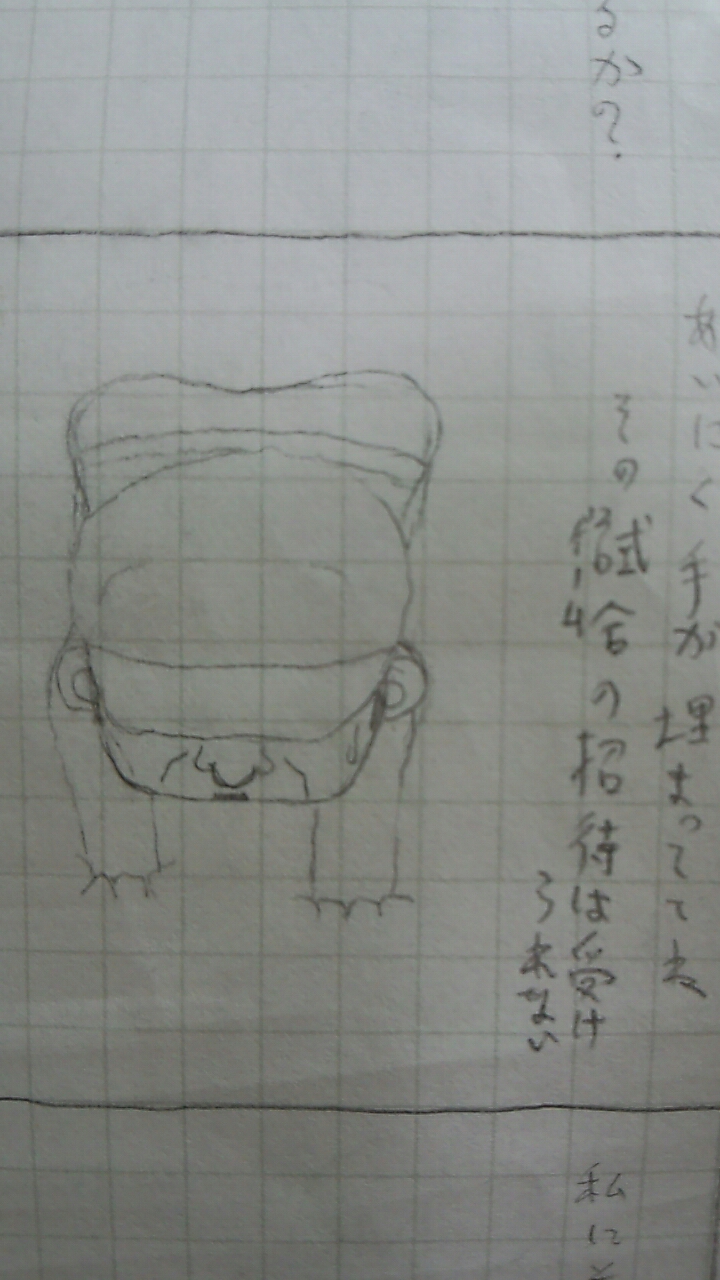 るか?
あいにく手が埋まっててね
その試合の招待は受け
られない
私に